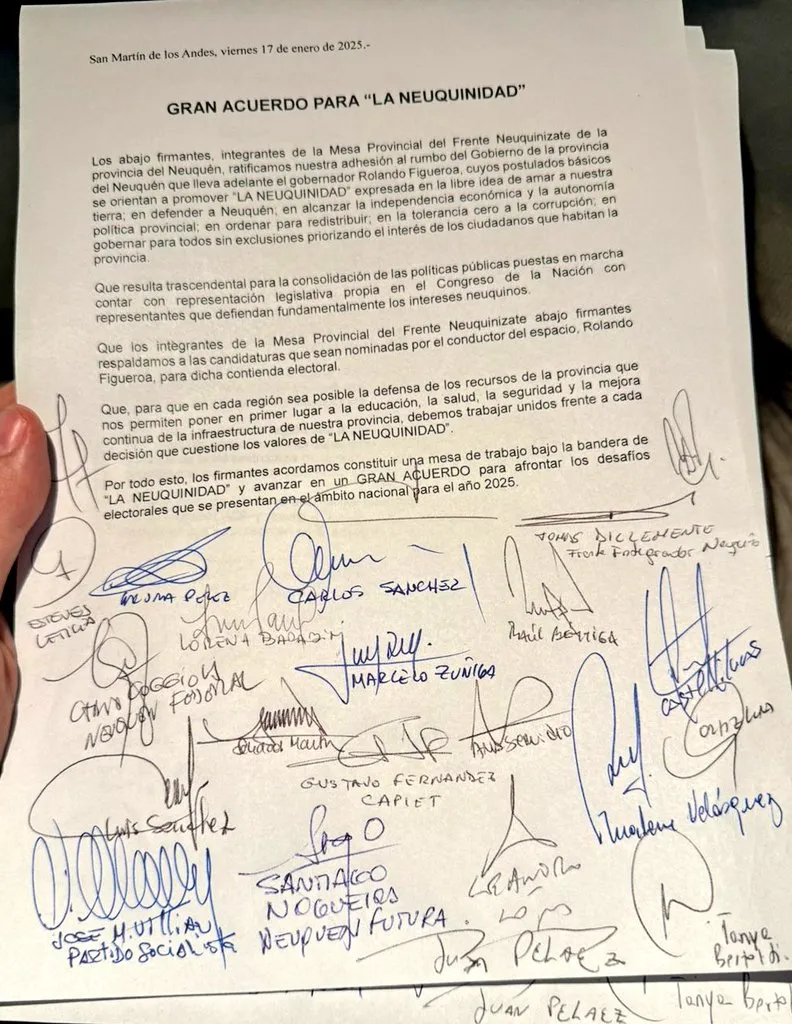 San Martín de los Andes, viernes 17 de enero de 2025.-
GRAN ACUERDO PARA "LA NEUQUINIDAD"
Los abajo firmantes, integrantes de la Mesa Provincial del Frente Neuquinizate de la
provincia del Neuquén, ratificamos nuestra adhesión al rumbo del Gobierno de la provincia
del Neuquén que lleva adelante el gobernador Rolando Figueroa, cuyos postulados básicos
se orientan a promover "LA NEUQUINIDAD" expresada en la libre idea de amar a nuestra
tierra; en defender a Neuquén; en alcanzar la independencia económica y la autonomía
política provincial; en ordenar para redistribuir; en la tolerancia cero a la corrupción; en
gobernar para todos sin exclusiones priorizando el interés de los ciudadanos que habitan la
provincia.
Que resulta trascendental para la consolidación de las políticas públicas puestas en marcha
contar con representación legislativa propia en el Congreso de la Nación con
representantes que defiendan fundamentalmente los intereses neuquinos.
Que los integrantes de la Mesa Provincial del Frente Neuquinizate abajo firmantes
respaldamos a las candidaturas que sean nominadas por el conductor del espacio, Rolando
Figueroa, para dicha contienda electoral.
Que, para que en cada región sea posible la defensa de los recursos de la provincia que
nos permiten poner en primer lugar a la educación, la salud, la seguridad y la mejora
continua de la infraestructura de nuestra provincia, debemos trabajar unidos frente a cada
decisión que cuestione los valores de "LA NEUQUINIDAD".
Por todo esto, los firmantes acordamos constituir una mesa de trabajo bajo la bandera de
"LA NEUQUINIDAD" y avanzar en un GRAN ACUERDO para afrontar los desafíos
electorales que se presentan en el ámbito nacional para el año 2025.
DICLEMENTE
Frente Integrador Neuquino
PEREZ
CARLOS SANCHEZ
ESTEVES
LETICIA
LORENA
RAÚL BETTIGA
MARCELO ZUÑIGA
NEUQUEN FEDERAL
GUSTAVO FERNANDEZ
CAPIET
Luis Sanchez
Marlene Velásquez
SANTIAGO
NOGUEIRA
NEUQUEN FUTURA
LEANDRO
JOSE M. VILLIAN
PARTIDO SOCIALISTA
JUAN PELAEZ
Tanya
Bertoldi.
JUAN PELAEZ
Tanya